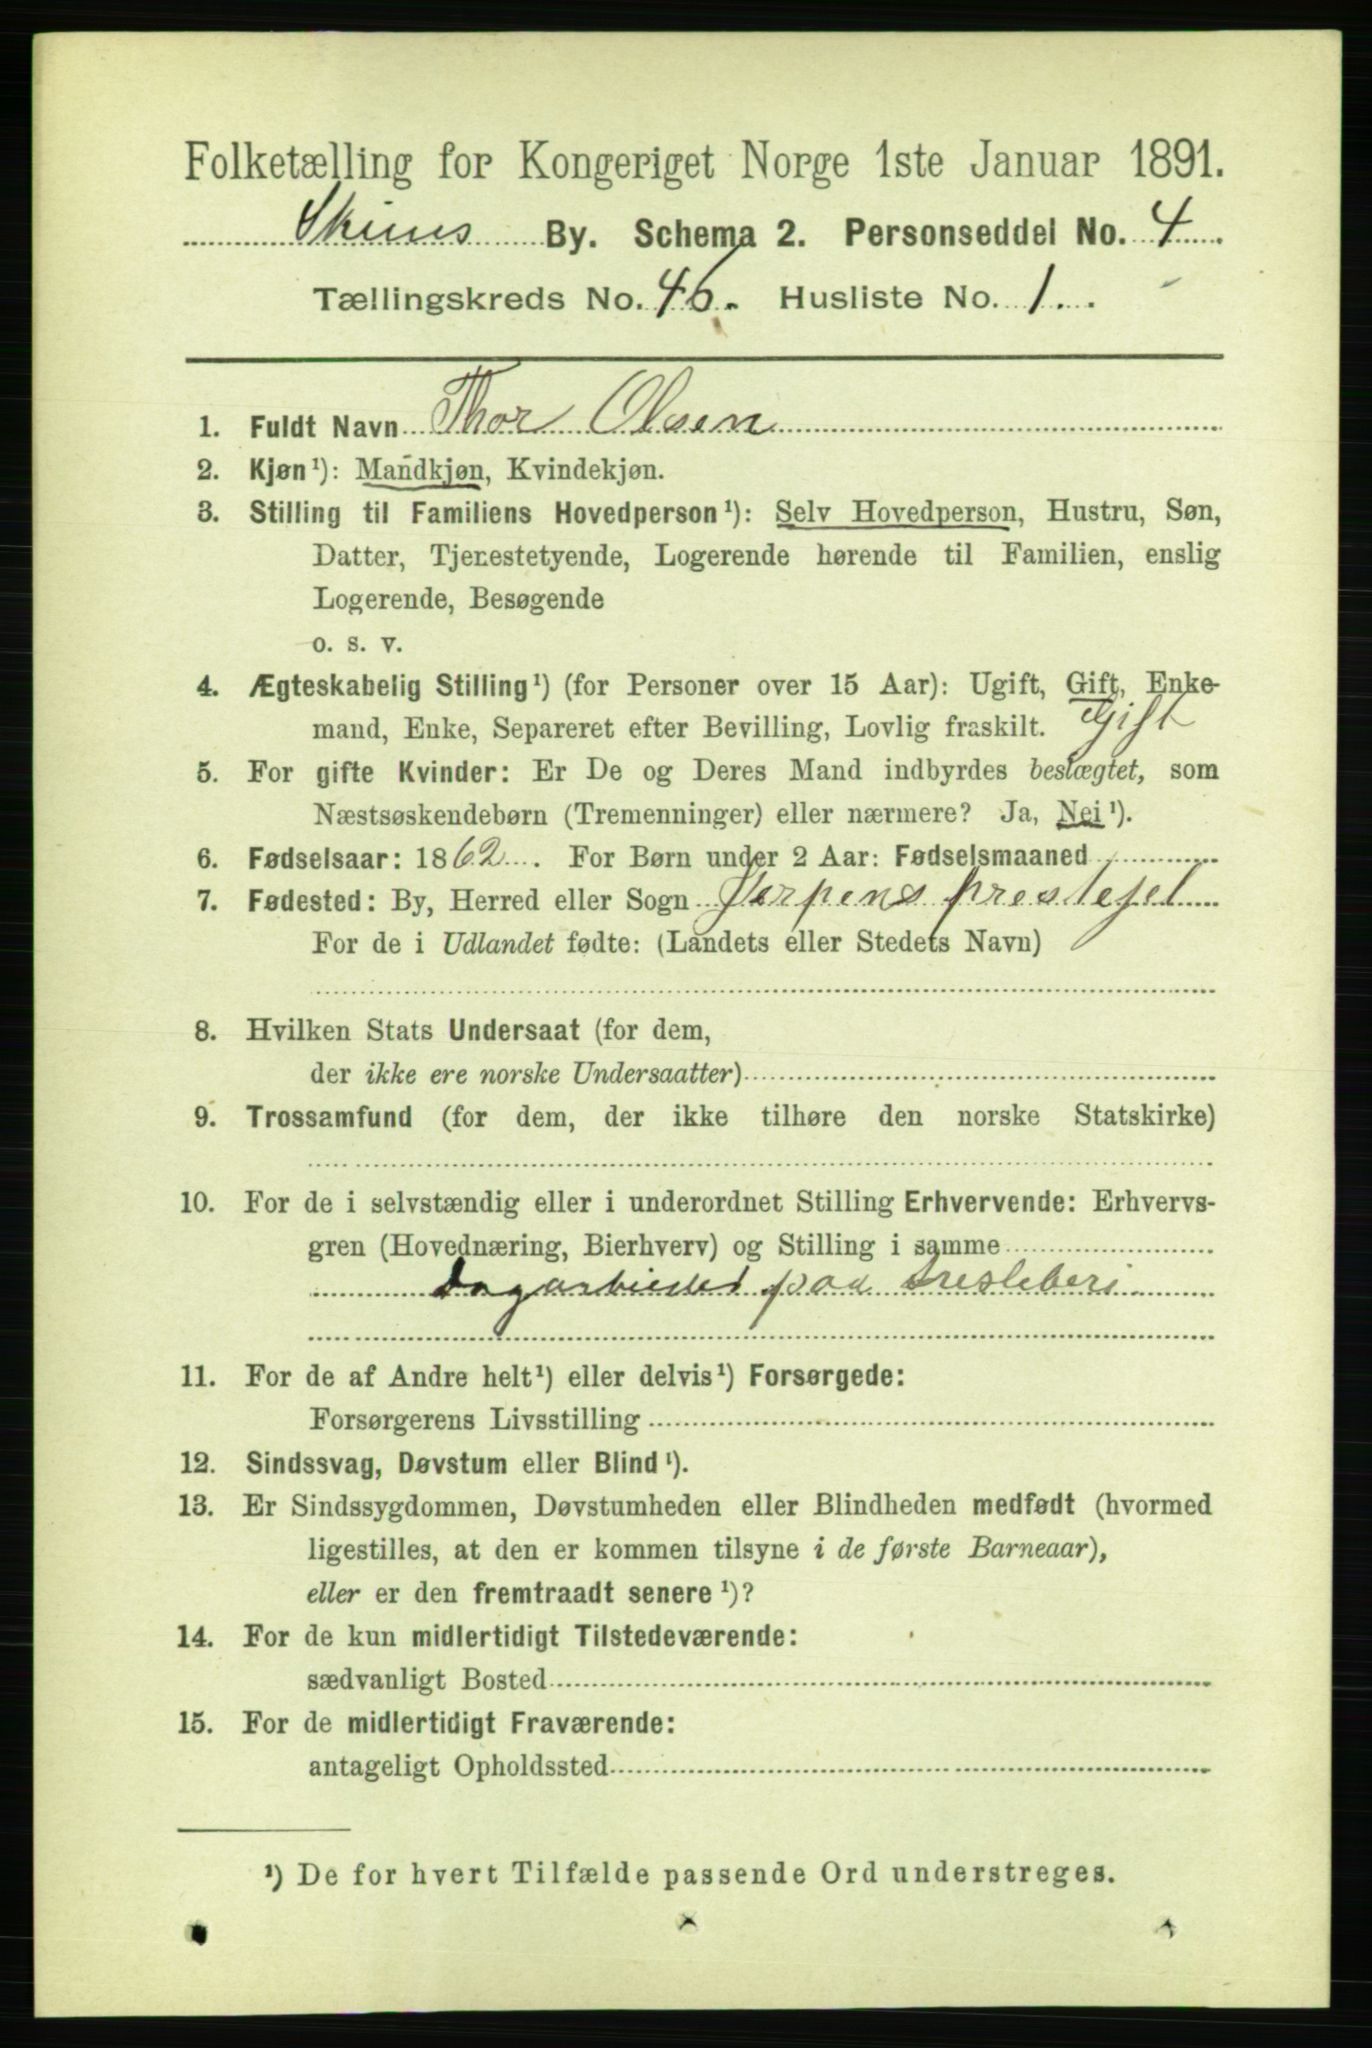 Folketælling for Kongeriget Norge 1ste Januar 1891.
Skiens By. Schema 2. Personseddel No. 4
Tællingskreds No. 46. Husliste No. 1.
1. Fuldt Navn Thor Olsen
2. Kjøn¹): Mandkjøn, Kvindekjøn.
3. Stilling til Familiens Hovedperson¹): Selv Hovedperson, Hustru, Søn,
Datter, Tjenestetyende, Logerende hørende til Familien, enslig
Logerende, Besøgende
o. s. v.
4. Ægteskabelig Stilling¹) (for Personer over 15 Aar): Ugift, Gift, Enke-
mand, Enke, Separeret efter Bevilling, Lovlig fraskilt. Gift
5. For gifte Kvinder: Er De og Deres Mand indbyrdes beslægtet, som
Næstsøskendebørn (Tremenninger) eller nærmere? Ja, Nei¹).
6. Fødselsaar: 1862. For Børn under 2 Aar: Fødselsmaaned
7. Fødested: By, Herred eller Sogn Jerpens prestejel
For de i Udlandet fødte: (Landets eller Stedets Navn)
8. Hvilken Stats Undersaat (for dem,
der ikke ere norske Undersaatter)
9. Trossamfund (for dem, der ikke tilhøre den norske Statskirke)
10. For de i selvstændig eller i underordnet Stilling Erhvervende: Erhvervs-
gren (Hovednæring, Bierhverv) og Stilling i samme
Dagarbieder paa
11. For de af Andre helt¹) eller delvis¹) Forsørgede:
Forsørgerens Livsstilling
12. Sindssvag, Døvstum eller Blind¹).
13. Er Sindssygdommen, Døvstumheden eller Blindheden medfødt (hvormed
ligestilles, at den er kommen tilsyne i de første Barneaar),
eller er den fremtraadt senere¹)?
14. For de kun midlertidigt Tilstedeværende:
sædvanligt Bosted
15. For de midlertidigt Fraværende:
antageligt Opholdssted
¹) De for hvert Tilfælde passende Ord understreges.